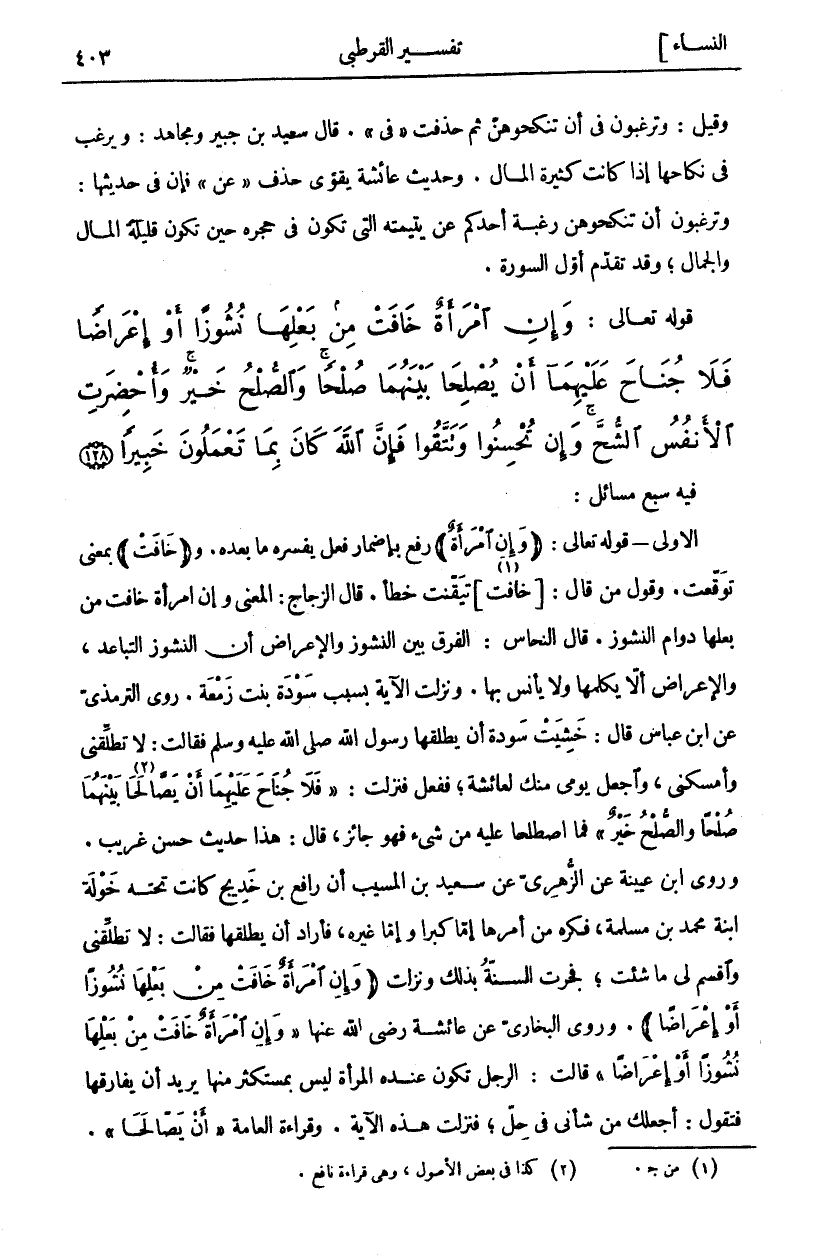 النساء ]
تفسير القرطبى
٤٠٣
وقيل : وترغبون فى أن تنكحوهنّ ثم حذفت « فى » . قال سعيد بن جبير ومجاهد : ويرغب
فى نكاحها إذا كانت كثيرة المال . وحديث عائشة يقوّى حذف « عن » فإن فى حديثها :
وترغبون أن تنكحوهن رغبة أحدكم عن يتيمته التى تكون فى حجره حين تكون قليلة المال
والجمال ؛ وقد تقدّم أوّل السورة .
قوله تعالى : وَإِنِ ٱمْرَأَةٌ خَافَتْ مِنۢ بَعْلِهَا نُشُوزًا أَوْ إِعْرَاضًا
فَلَا جُنَاحَ عَلَيْهِمَآ أَنْ يُصْلِحَا بَيْنَهُمَا صُلْحًا ۚ وَٱلصُّلْحُ خَيْرٌ ۗ وَأُحْضِرَتِ
ٱلْأَنفُسُ ٱلشُّحَّ ۚ وَإِن تُحْسِنُوا وَتَتَّقُوا فَإِنَّ ٱللَّهَ كَانَ بِمَا تَعْمَلُونَ خَبِيرًا ﴿١٢٨﴾
فيه سبع مسائل :
الاولى – قوله تعالى : ( وَإِنِ ٱمْرَأَةٌ ) رفع بإضمار فعل يفسره ما بعده . و ( خَافَتْ ) بمعنى
توقّعت . وقول من قال : [ خافت ] (١) تيقّنت خطأ . قال الزجاج : المعنى وإن امرأة خافت من
بعلها دوام النشوز . قال النحاس : الفرق بين النشوز والإعراض أن النشوز التباعد ،
والإعراض ألّا يكلمها ولا يأنس بها . ونزلت الآية بسبب سَوْدَة بنت زَمْعَة . روى الترمذىّ
عن ابن عباس قال : خَشِيَتْ سَودة أن يطلقها رسول الله صلى الله عليه وسلم فقالت : لا تطلّقنى
وأمسكنى ، وٱجعل يومى منك لعائشة ؛ ففعل فنزلت : « فَلَا جُنَاحَ عَلَيْهِمَا أَنْ يَصَّالَحَا (٢) بَيْنَهُمَا
صُلْحًا والصُّلْحُ خَيْرٌ » فما اصطلحا عليه من شىء فهو جائز ، قال : هذا حديث حسن غريب .
وروى ابن عيينة عن الزُّهرىّ عن سعيد بن المسيب أن رافع بن خَدِيج كانت تحته خَوْلَة
ابنة محمد بن مسلمة ، فكره من أمرها إمّا كبرا وإمّا غيره ، فأراد أن يطلقها فقالت : لا تطلّقنى
وٱقسم لى ما شئت ؛ فجرت السنةُ بذلك ونزلت ( وَإِنِ ٱمْرَأَةٌ خَافَتْ مِنْ بَعْلِهَا نُشُوزًا
أَوْ إِعْرَاضًا ) . وروى البخارىّ عن عائشة رضى الله عنها « وَإِنِ ٱمْرَأَةٌ خَافَتْ مِنْ بَعْلِهَا
نُشُوزًا أَوْ إِعْرَاضًا » قالت : الرجل تكون عنده المرأة ليس بمستكثر منها يريد أن يفارقها
فتقول : أجعلك من شأنى فى حِلّ ؛ فنزلت هذه الآية . وقراءة العامة « أَنْ يَصَّالَحَا » .
(١) من جـ .
(٢) كذا فى بعض الأصول ، وهى قراءة نافع .